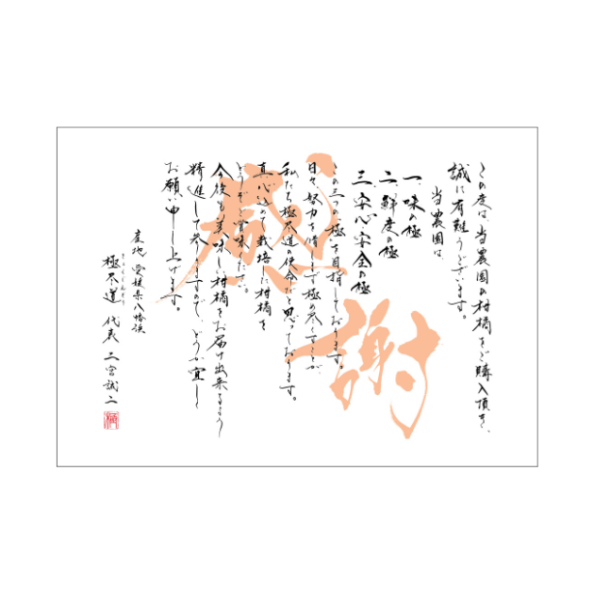 この度は当農園の柑橘をご購入頂き、
誠に有難うございます。
当農園は、
一、味の極
二、鮮度の極
三、安心・安全の極
この三つの極を目指しております。
日々努力を惜しまず極め尽くすことが
私たち極尽道の使命だと思っております。
真心込めて栽培した柑橘を
どうぞご賞味下さい。
今後も美味しい柑橘をお届け出来るよう
精進して参りますので、どうか宜しく
お願い申し上げます。
産地 愛媛県八幡浜
極尽道 代表 二宮誠二
感謝